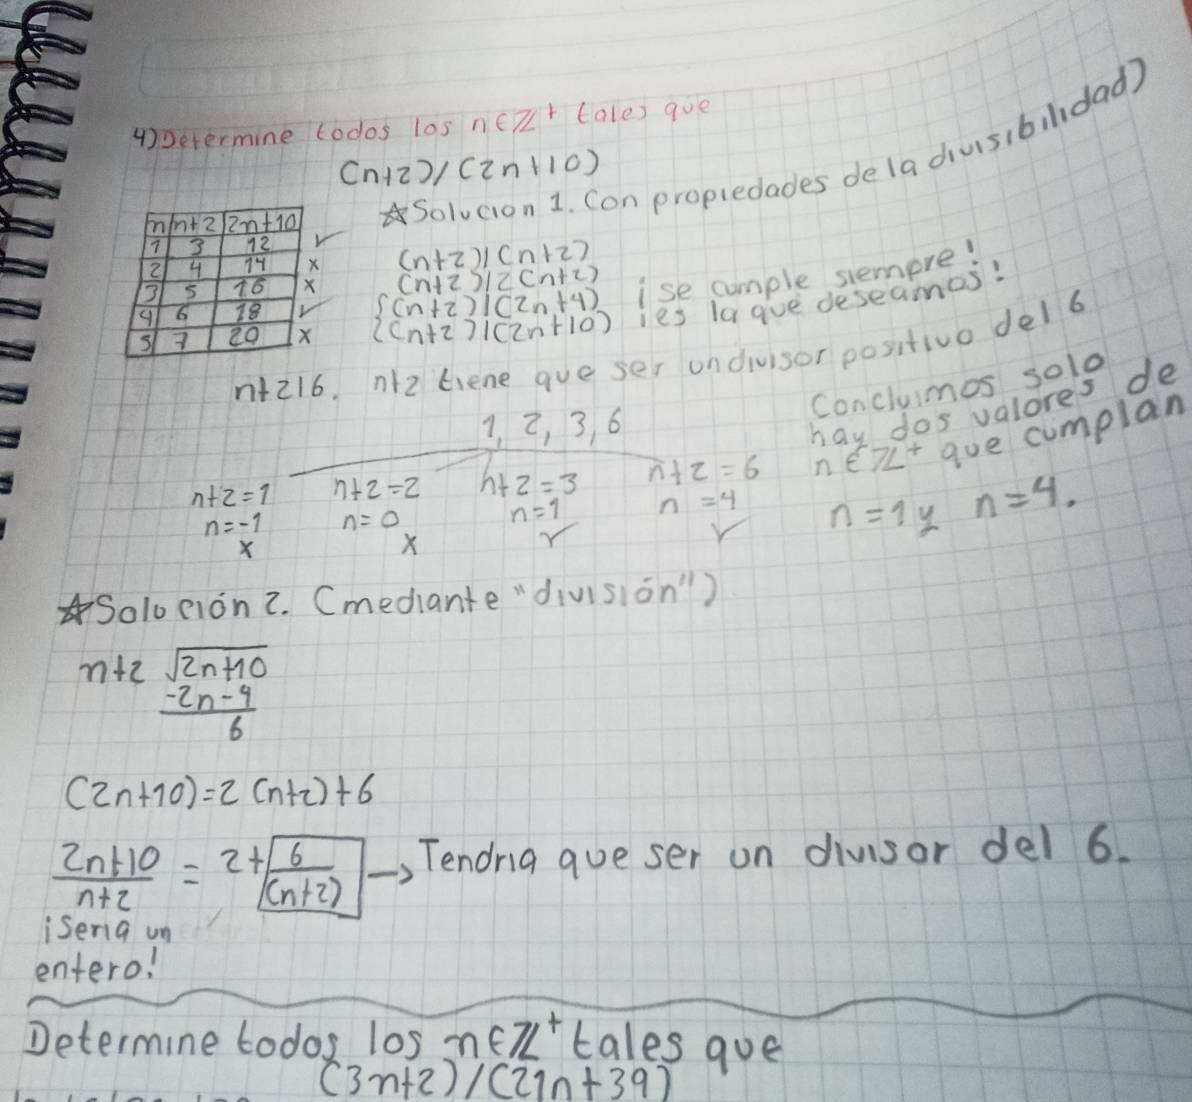 4) Determine todos los n∈Z⁺ tales que
(n+2)/(2n+10)
☆Solucion 1. Con propiedades de la divisibilidad)
n n+2 2n+10
1 3 12 ✓
2 4 14 x
3 5 16 x
4 6 18 ✓
5 7 20 x
(n+2)|(n+2)
(n+2)|2(n+2)
{(n+2)|(2n+4) ¡se cumple siempre!
{(n+2)|(2n+10) ¡es la que deseamos!
n+2|6. n+2 tiene que ser un divisor positivo del 6
1, 2, 3, 6
n+2=1 n+2=2 n+2=3 n+2=6
n=-1 n=0 n=1 n=4
x x ✓ ✓
Concluimos solo
hay dos valores de
n∈Z⁺ que cumplan
n=1 y n=4.
☆Solución 2. (mediante "división")
n+2 √2n+10
-2n-4
6
(2n+10)=2(n+2)+6
2n+10/n+2 = 2+6/(n+2) → Tendria que ser un divisor del 6.
¡Seria un
entero!
Determine todos los n∈Z⁺ tales que
(3n+2)/(21n+39)